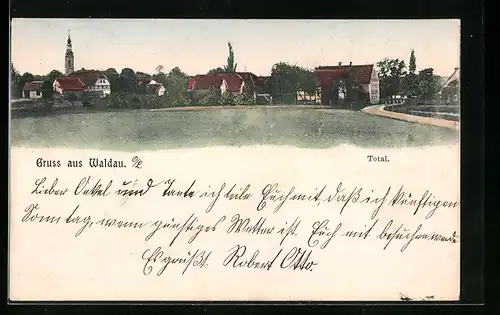 Gruss aus Waldau. O/L
Total.
Lieber Onkel und Tante ich teile Euch mit, daß ich künftigen
Sonntag, wenn günstiges Wetter ist. Euch mit besuchen werde
Es grüßt. Robert Otto.